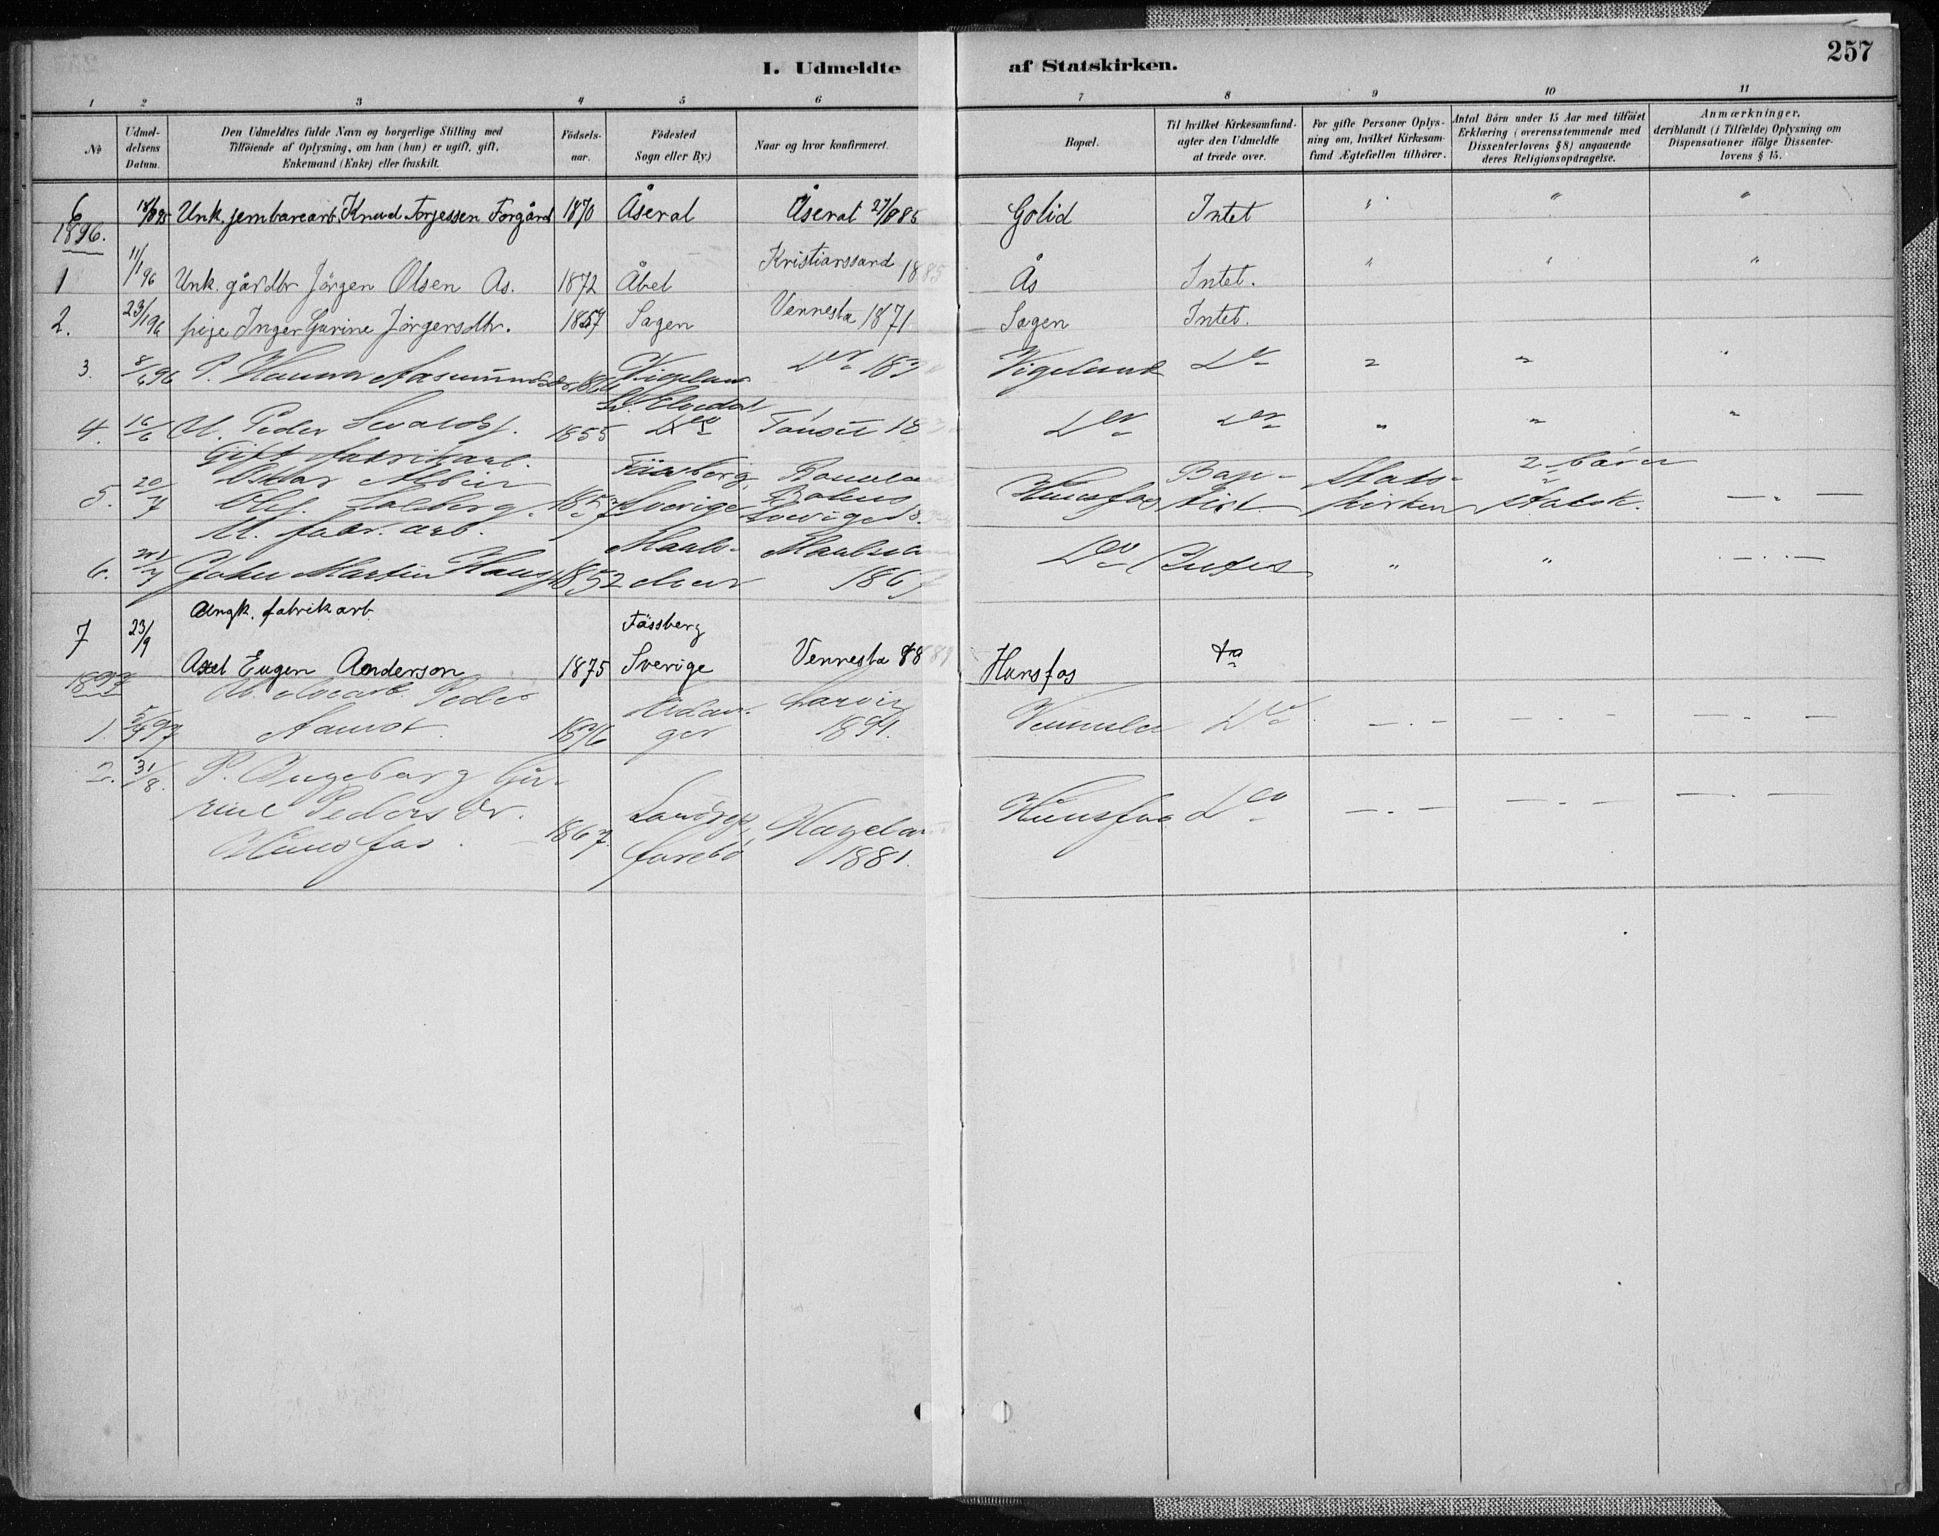 257
I. Udmeldte af Statskirken.
1 2 3 4 5 6 7 8 9 10 11
№
Udmeldelsens Datum.
Den Udmeldtes fulde Navn og borgerlige Stilling med
Tilføiende af Oplysning, om han (hun) er ugift, gift,
Enkemand (Enke) eller fraskilt.
Fødsels-
aar.
Fødested
Sogn eller By.)
Naar og hvor konfirmeret.
Bopæl.
Til hvilket Kirkesamfund
agter den Udmeldte
at træde over.
For gifte Personer Oplys-
ning om, hvilket Kirkesam-
fund Ægtefællen tilhører.
Antal Børn under 15 Aar med tilføiet
Erklæring (overensstemmende med
Dissenterlovens § 8) angaaende
deres Religionsopdragelse.
Anmærkninger,
deriblandt (i Tilfælde) Oplysning om
Dispensationer ifølge Dissenter-
lovens § 15.
6 Unk. jernbanearb. Knud Torjessen Forgård 1870 Åseral Åseral 27/9 85 Golid Intet " " "
1896.
1 11/1 96 Unk. gårdbr Jörgen Olsen As. 1872 Åbel Kristianssand 1885 Ås Intet. " " "
2. 23/1 96 pige Inger Gurine Jörgensdtr. 1857 Sagen Vennesla 1871 Sagen Intet.
3. 8/6 96 P. Hanna Aasmundsdr. Vigeland Do Vigeland Do " " "
4. 16/6 U. Peder Sevalds. 1855 Do Tönset Do Do " " "
Gift fabrikarb.
5. 20/7 Oskar Albin
Ols. Salberg. 1857 Fässberg, Sverige Bohus Sverige Hunsfos Bap-
tist Stats-
kirken 2 børn
Statsk. — " —
U. fabr. arb.
6. John Martin Haug 1852 Maals-
elven Maalselv 186 Do " " — . —
Ungk. fabrikarb.
7 23/9 Axel Eugen Anderson 1875 Fässberg
Sverige Vennesla 1889 Hunsfos do
1897
1. 5/4 97 Peder
Aamot. 1876 Eidan-
ger Larvig
1891. Vennesla Do — . — — . — — . —
2. 31/8. P. Ingeborg Gu-
rine Pedersdr.
Hunsfos. 1867 Hægeland
1881. Hunsfos Do — . — — . — — . —